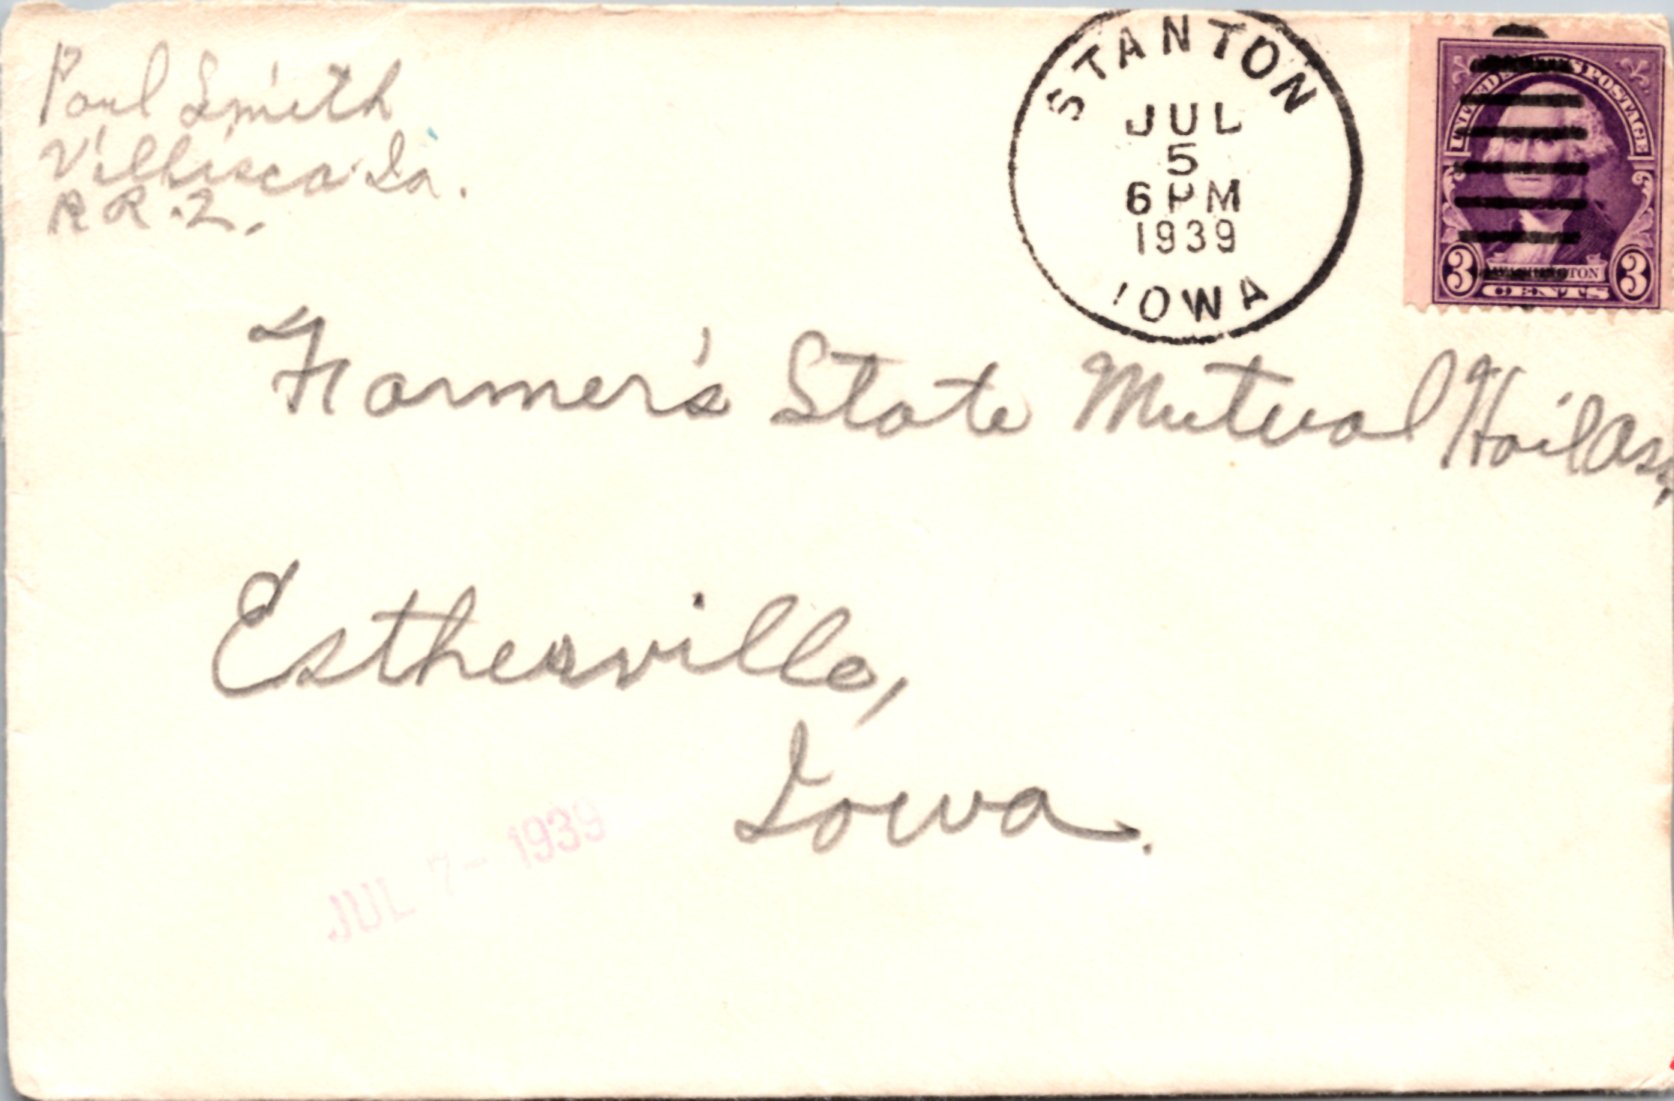 Paul Smith
Villisca Ia.
R R. 2.
STANTON
JUL
5
6 PM
1939
IOWA
UNITED STATES POSTAGE
3 WASHINGTON 3
CENTS
Farmer's State Mutual Hail Ass.
Estherville,
Iowa.
JUL 7- 1939